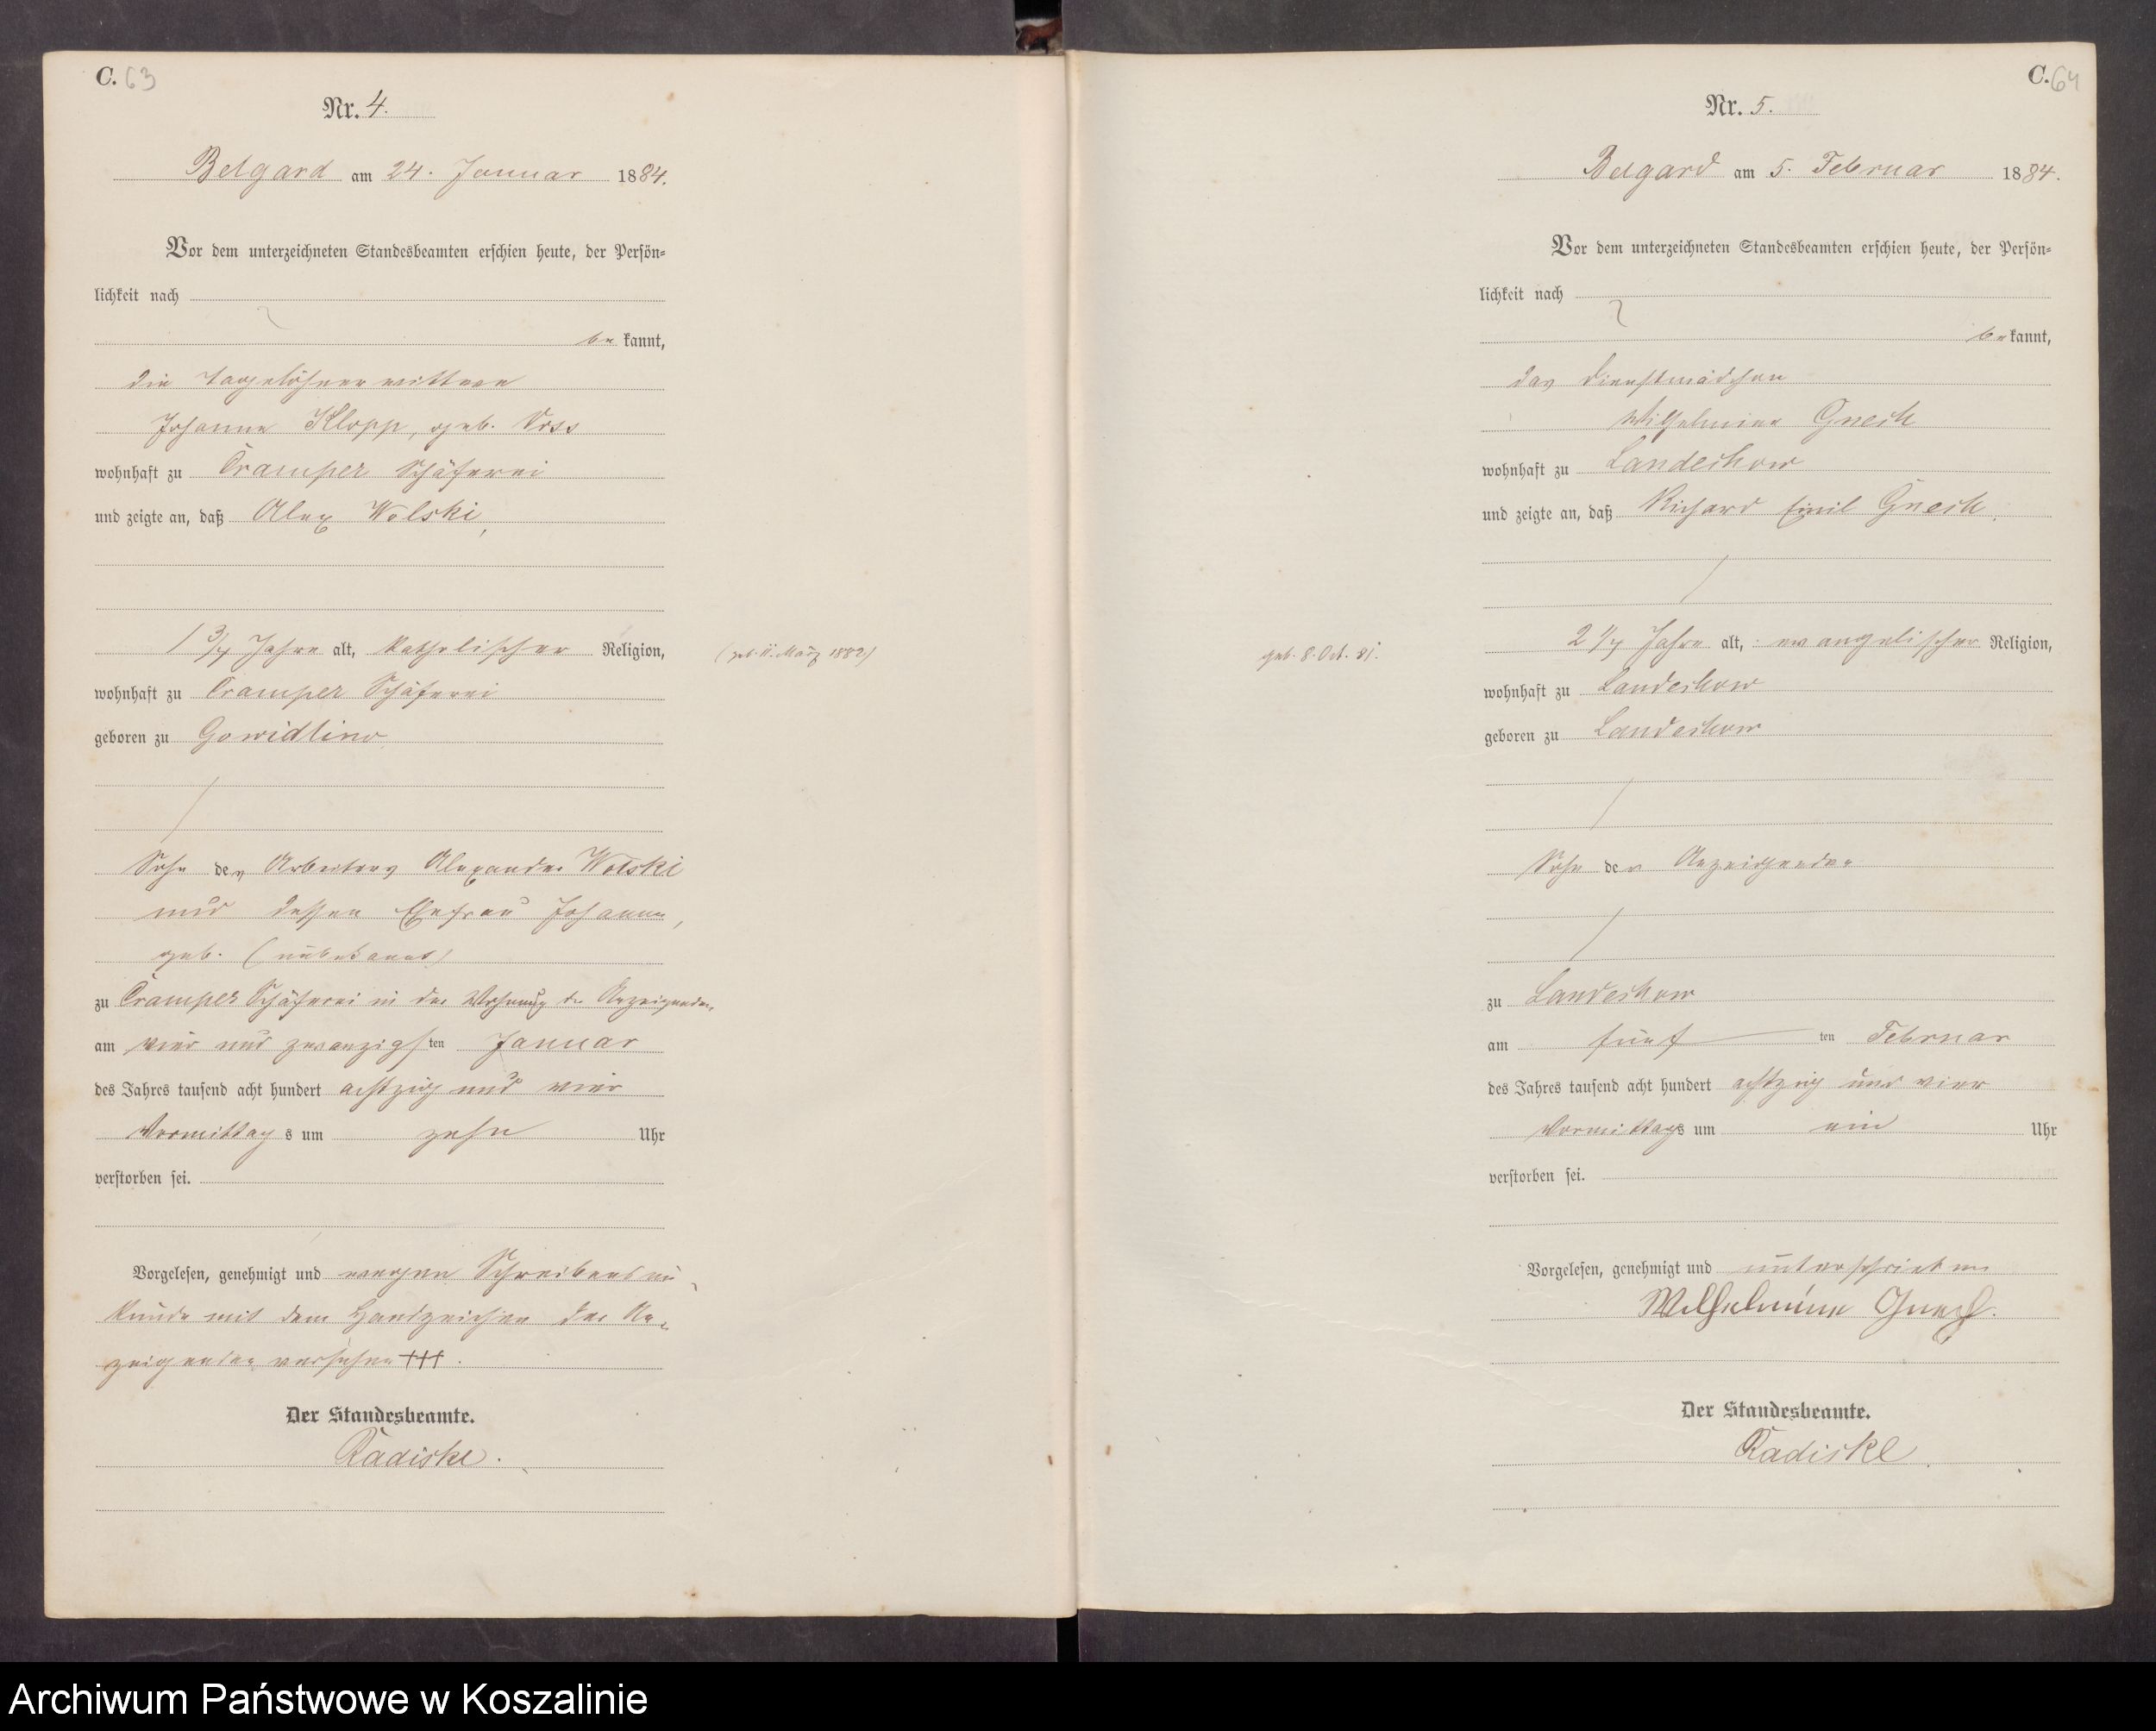 C. 63
Nr. 4.
Belgard am 24. Januar 1884.
Vor dem unterzeichneten Standesbeamten erschien heute, der Persön-
lichkeit nach
be kannt,
die Tagelöhnerwittwe
Johanne Klopp, geb. Voss
wohnhaft zu Cramper Schäferei
und zeigte an, daß Alex Wolski,
1 3/4 Jahre alt, katholischer Religion,
(geb. 11. März 1882)
wohnhaft zu Cramper Schäferei
geboren zu Gowidlino
Sohn des Arbeiters Alexander Wolski
und dessen Ehefrau Johanna,
geb. (unbekannt)
zu Cramper Schäferei in der Wohnung der Anzeigenden,
am vier und zwanzigsten Januar
des Jahres tausend acht hundert achtzig und vier
Vormittags um zehn Uhr
verstorben sei.
Vorgelesen, genehmigt und wegen Schreibensun-
kunde mit dem Handzeichen der An-
zeigenden versehen +++.
Der Standesbeamte.
Radiske.
C. 64
Nr. 5.
Belgard am 5. Februar 1884.
Vor dem unterzeichneten Standesbeamten erschien heute, der Persön-
lichkeit nach
be kannt,
das Dienstmädchen
Wilhelmine Gnech
wohnhaft zu Landechow
und zeigte an, daß Richard Emil Gnech,
2 1/4 Jahre alt, evangelischer Religion,
geb. 8. Oct. 81.
wohnhaft zu Landechow
geboren zu Landechow
Sohn der Anzeigenden
zu Landechow
am fünf ten Februar
des Jahres tausend acht hundert achtzig und vier
Vormittags um ein Uhr
verstorben sei.
Vorgelesen, genehmigt und unterschrieben
Wilhelmine Gnech.
Der Standesbeamte.
Radiske.
Archiwum Państwowe w Koszalinie